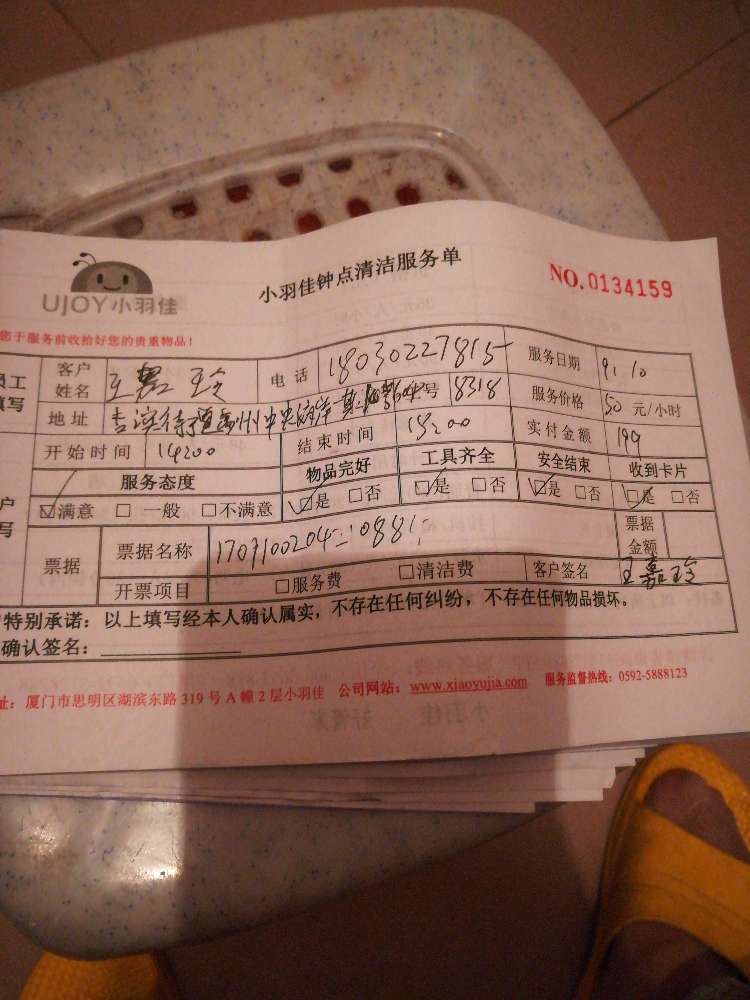 UJOY小羽佳
小羽佳钟点清洁服务单
NO.0134159
您于服务前收拾好您的贵重物品！
员工
填写
客户姓名 王嘉玲 电话 18030227815 服务日期 9.10
地址 号 8318 服务价格 50 元/小时
开始时间 14:00 结束时间 15:00 实付金额 199
服务态度 物品完好 工具齐全 安全结束 收到卡片
☑满意 □一般 □不满意 ☑是 □否 ☑是 □否 ☑是 □否 ☑是 □否
票据 票据名称 票据金额
开票项目 □服务费 □清洁费 客户签名 王嘉玲
特别承诺：以上填写经本人确认属实，不存在任何纠纷，不存在任何物品损坏。
确认签名：
址：厦门市思明区湖滨东路 319 号 A 幢 2 层小羽佳 公司网站：www.xiaoyujia.com 服务监督热线：0592-5888123